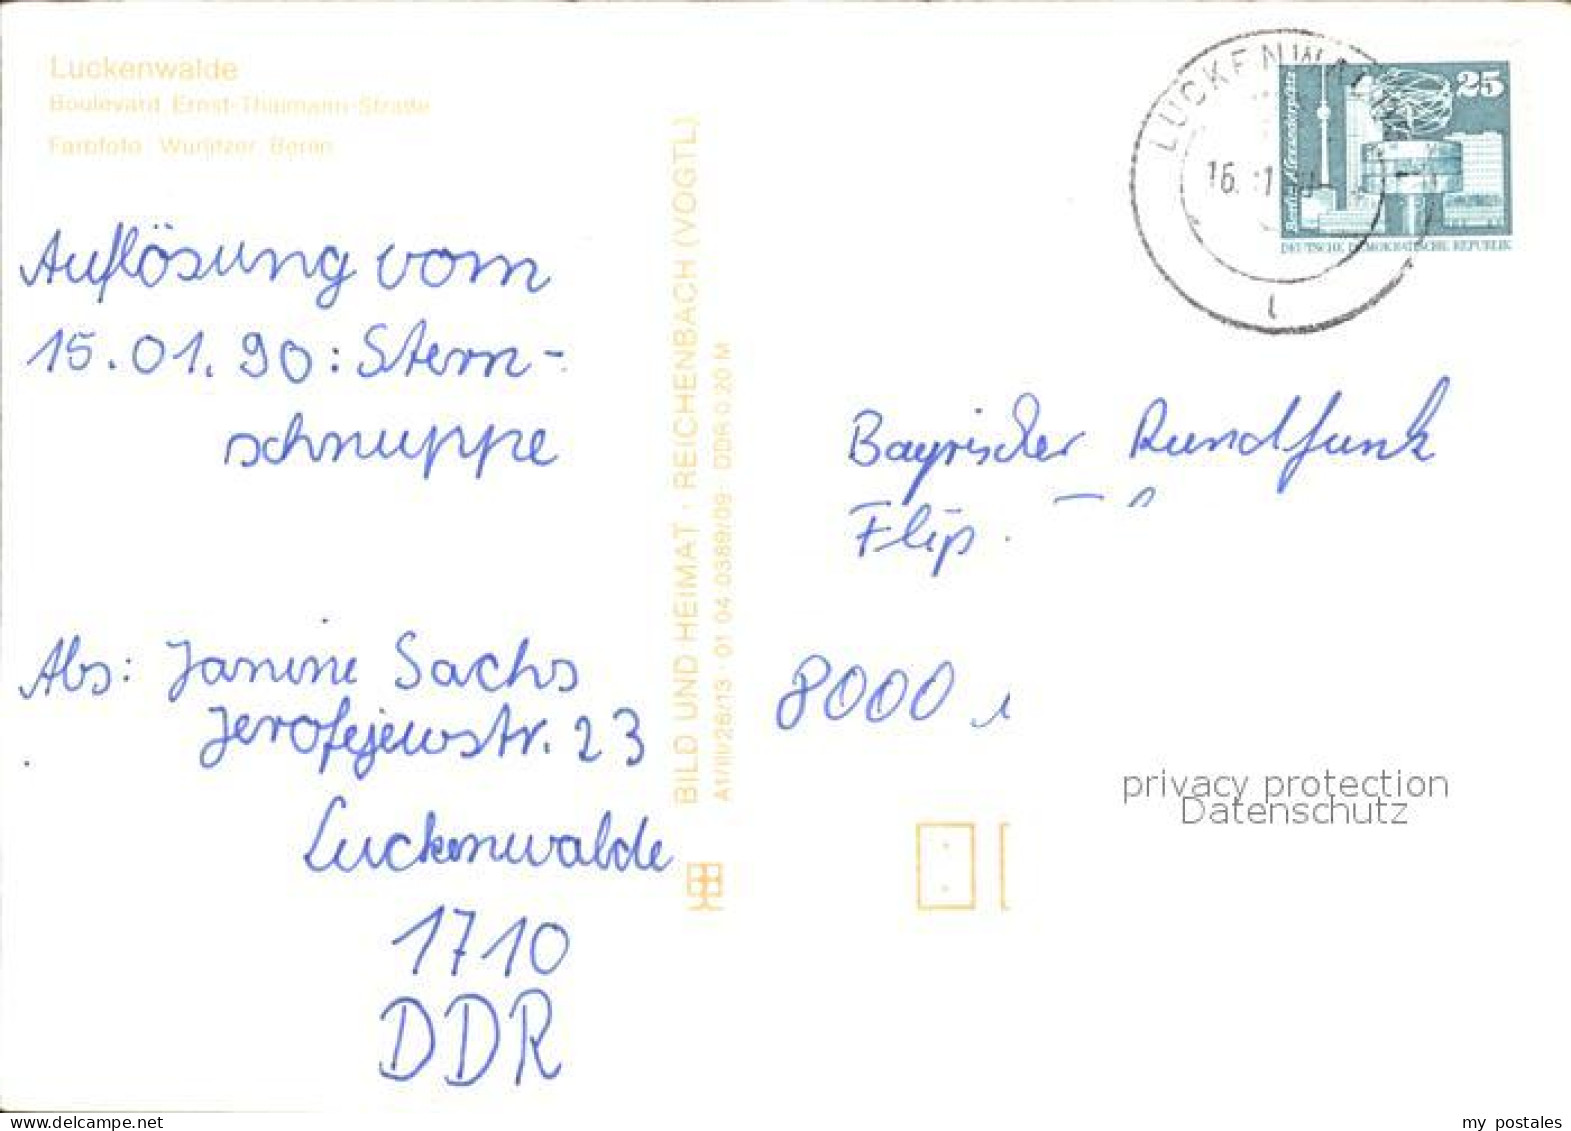 Luckenwalde
Boulevard Ernst-Thälmann-Straße
Farbfoto: Wurlitzer, Berlin
Auflösung vom
15.01.90: Stern-
schnuppe
Abs: Janine Sachs
Jerofejewstr. 23
Luckenwalde
1710
DDR
BILD UND HEIMAT · REICHENBACH (VOGTL)
A1/III/26/13 · 01 04 0389/09 · DDR 0,20 M
LUCKENWALDE
16.
1
25
Berlin, Alexanderplatz
DEUTSCHE DEMOKRATISCHE REPUBLIK
Bayrischer Rundfunk
Flip
8000
privacy protection
Datenschutz
delcampe.net
my_postales